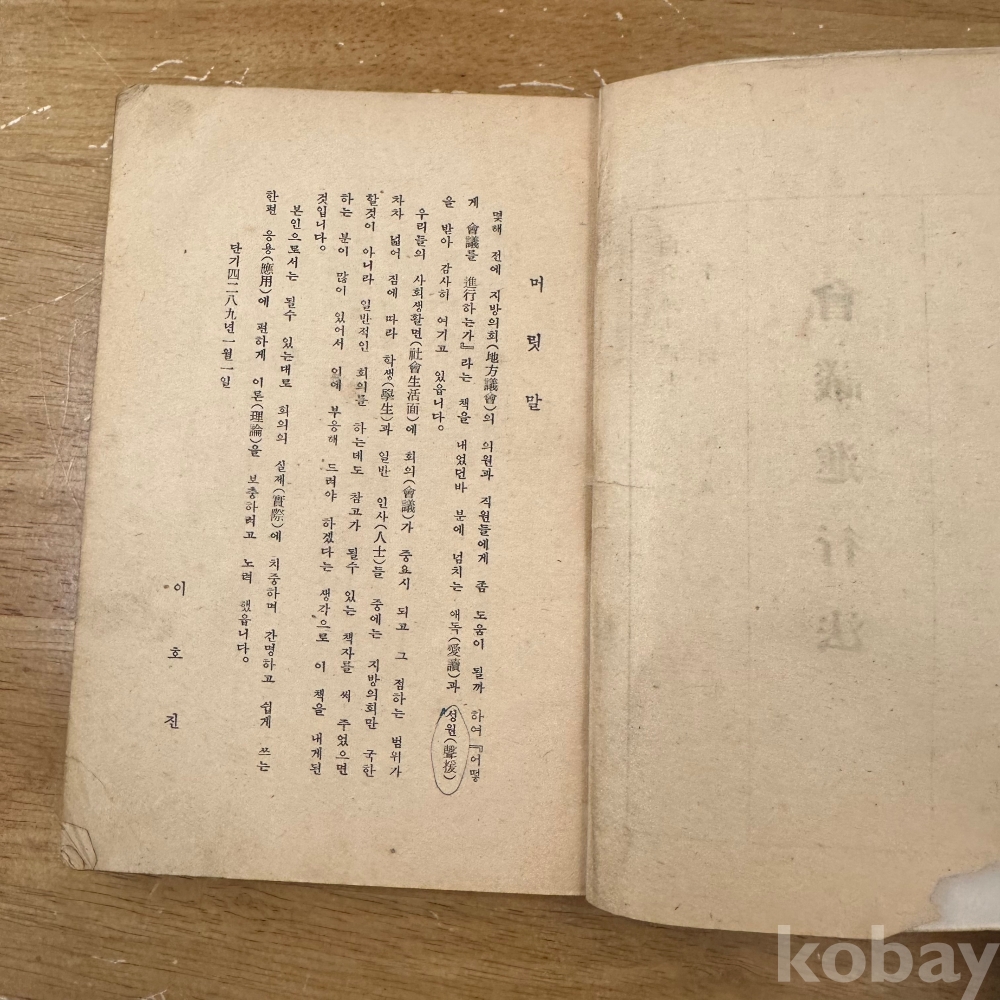 머릿말
몇해 전에 지방의회(地方議會)의 의원과 직원들에게 좀 도움이 될까 하여 『어떻
게 會議를 進行하는가』라는 책을 내었던바 분에 넘치는 애독(愛讀)과 성원(聲援)
을 받아 감사히 여기고 있읍니다.
우리들의 사회생활면(社會生活面)에 회의(會議)가 중요시 되고 그 점하는 범위가
차차 넓어 짐에 따라 학생(學生)과 일반 인사(人士)들 중에는 지방의회만 국한
할것이 아니라 일반적인 회의를 하는데도 참고가 될수 있는 책자를 써 주었으면
하는 분이 많이 있어서 이에 부응해 드려야 하겠다는 생각으로 이 책을 내게된
것입니다.
본인으로서는 될수 있는대로 회의의 실제(實際)에 치중하며 간명하고 쉽게 쓰는
한편 응용(應用)에 편하게 이론(理論)을 보충하려고 노력 했읍니다.
단기四二八九년一월一일
이호진
會議進行法
kobay